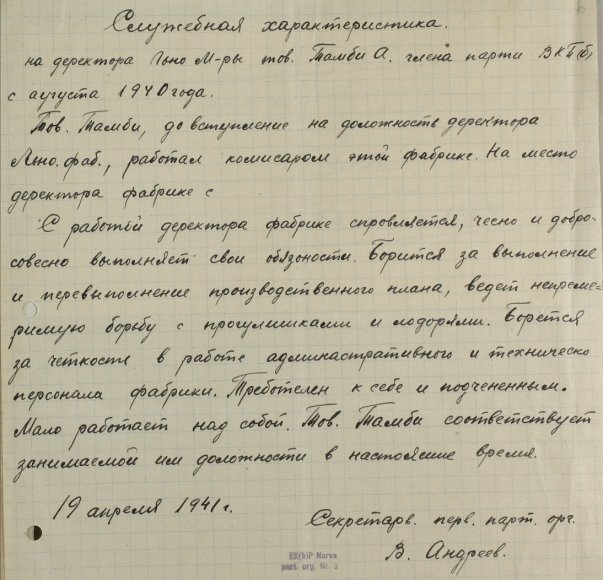 Служебная характеристика.
на деректора Льно М-ры тов. Тамби А. члена парти ВКП(б)
с аугуста 1940 года.
Тов. Тамби, до вступление на должность деректора
Льно. фаб., работал комисаром этой фабрике. На место
деректора фабрике с
С работой деректора фабрике спровляется, чесно и добро-
совесно выполняет свои обязоности. Борится за выполнение
и перевыполнение производственного плана, ведет непреме-
римую борьбу с прогулишками и лодорями. Борется
за четкость в работе админастративного и техническо
персонала фабрики. Треботелен к себе и подчененным.
Мало работает над собой. Тов. Тамби соответствует
занимаемой им должности в настояшие время.
19 апреля 1941 г.
Секретарь. перв. парт. орг.
В. Андреев.
EK(b)P Narva
part. org. Nr. 8